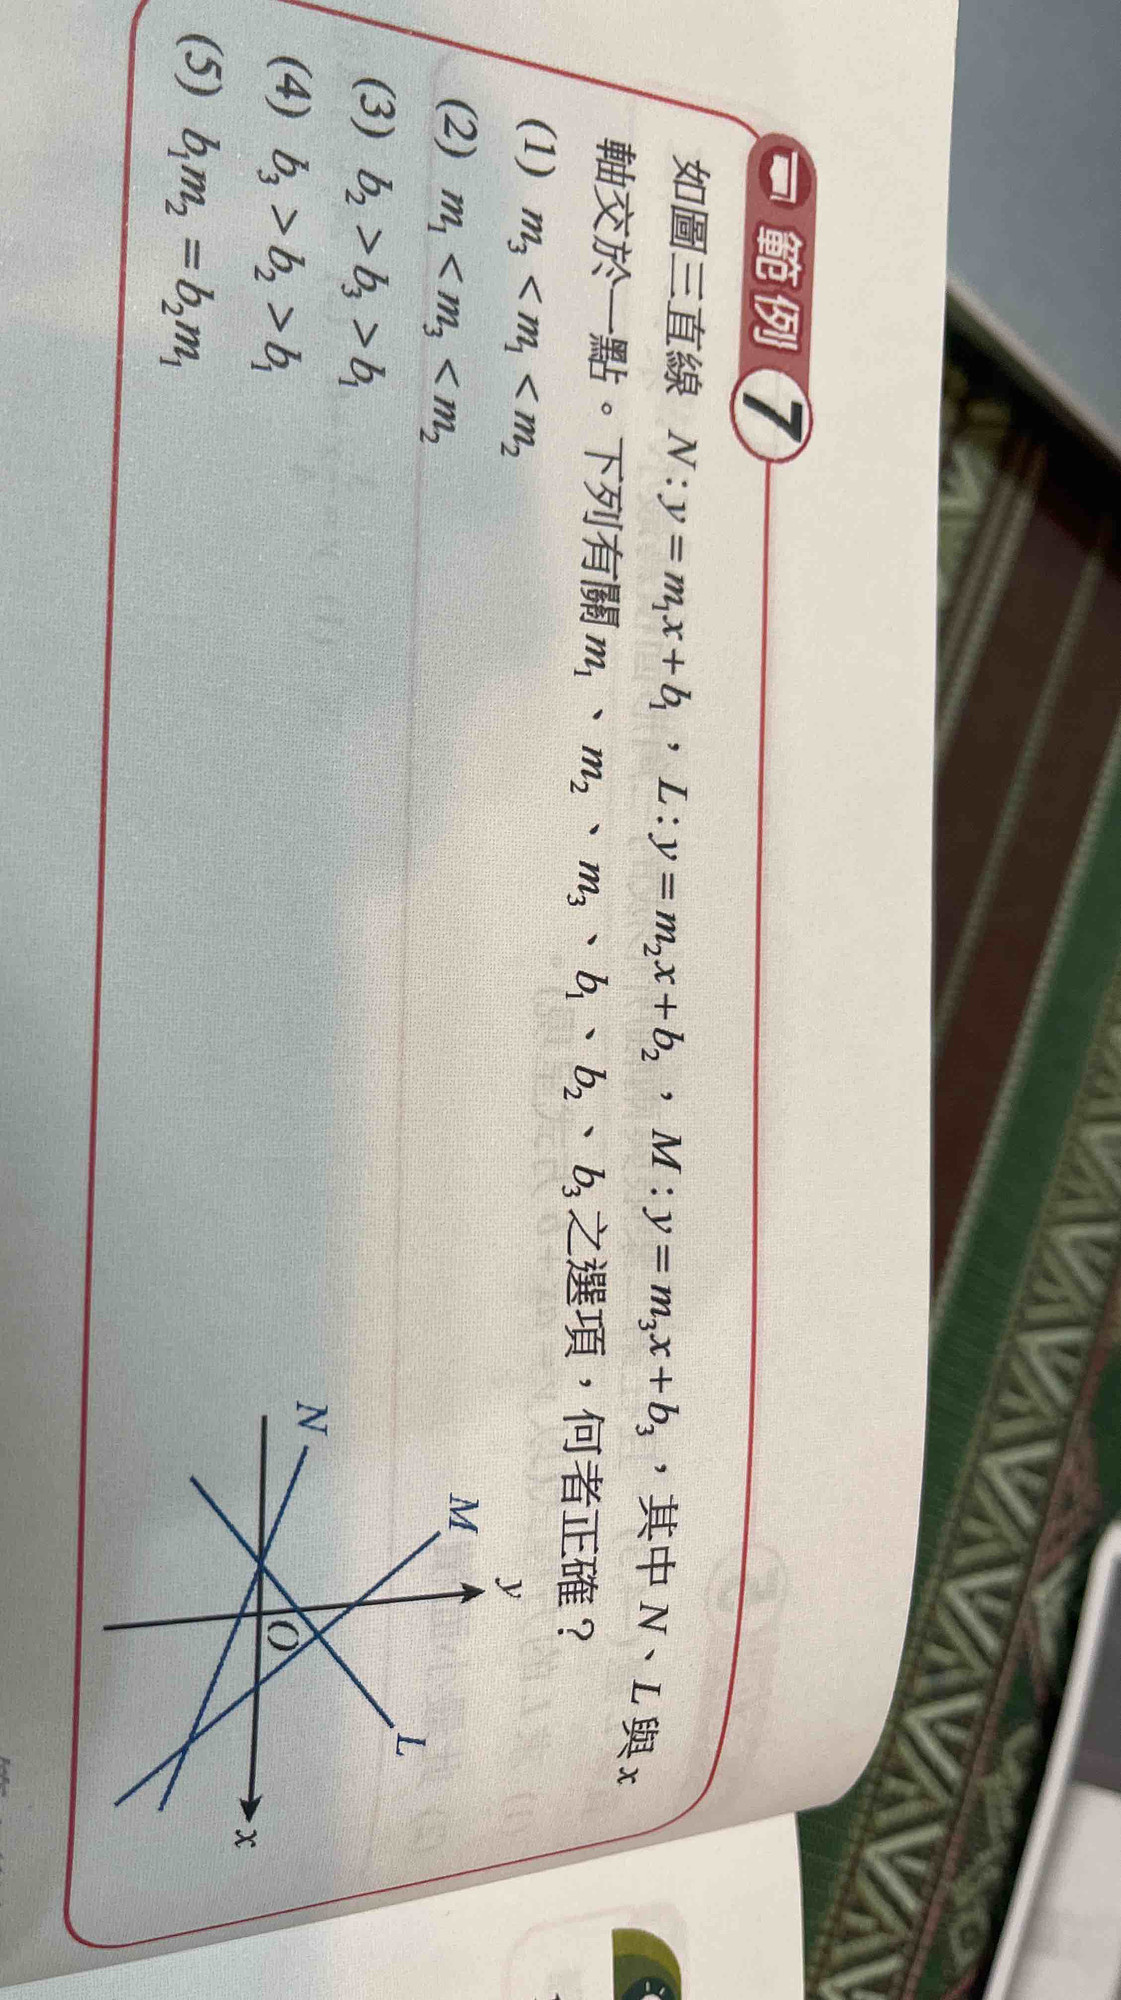 範例 7
如圖三直線 N:y=m₁x+b₁,L:y=m₂x+b₂,M:y=m₃x+b₃,其中 N、L 與 x
軸交於一點。下列有關 m₁、m₂、m₃、b₁、b₂、b₃之選項,何者正確?
(1) m₃<m₁<m₂
(2) m₁<m₃<m₂
(3) b₂>b₃>b₁
(4) b₃>b₂>b₁
(5) b₁m₂=b₂m₁
y
M
N
L
O
x